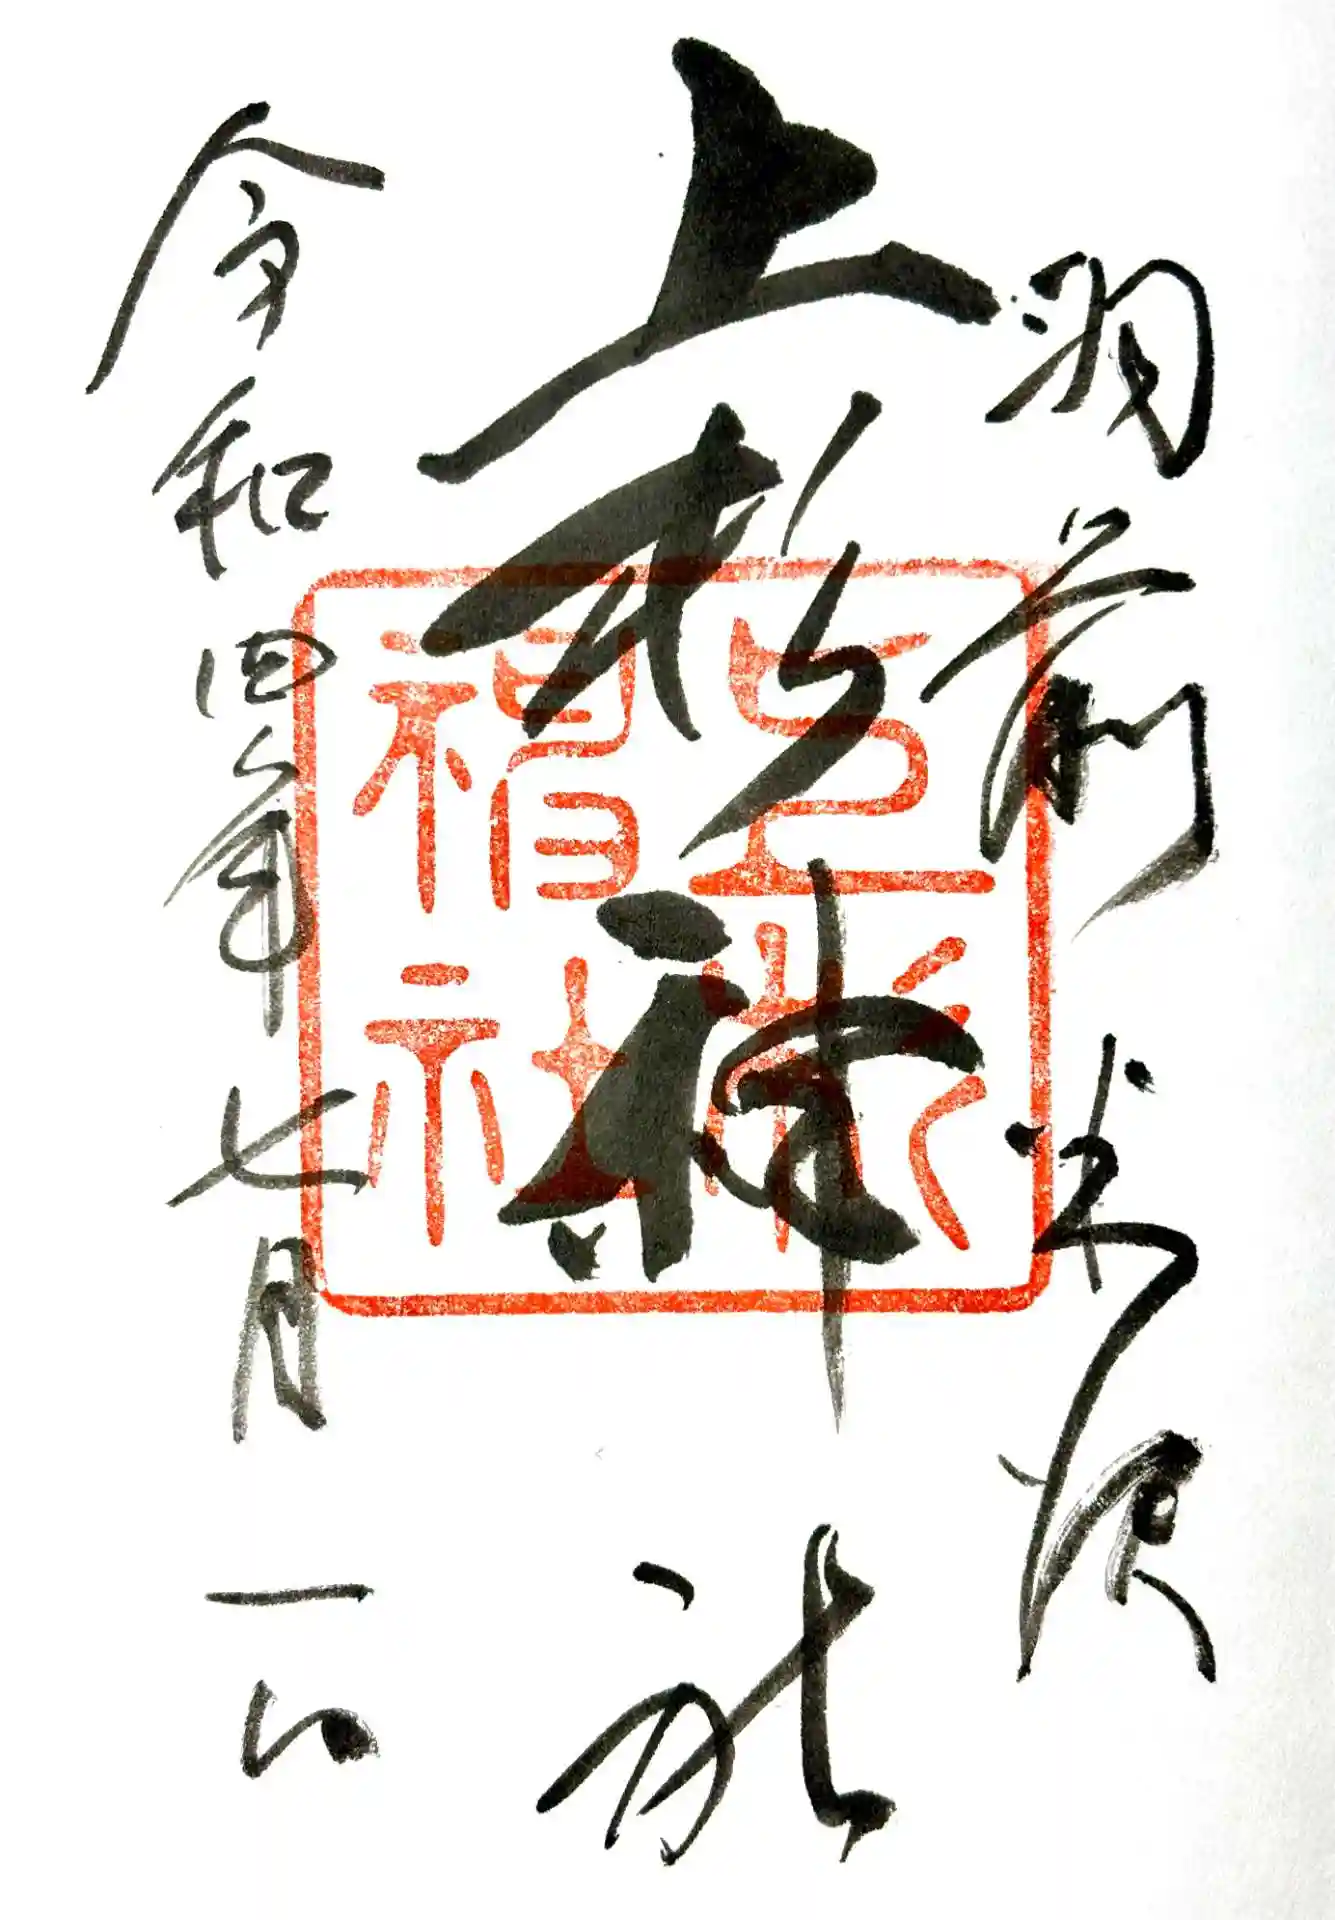 羽前米沢
上杉神社
令和四年七月一日
上杉神社